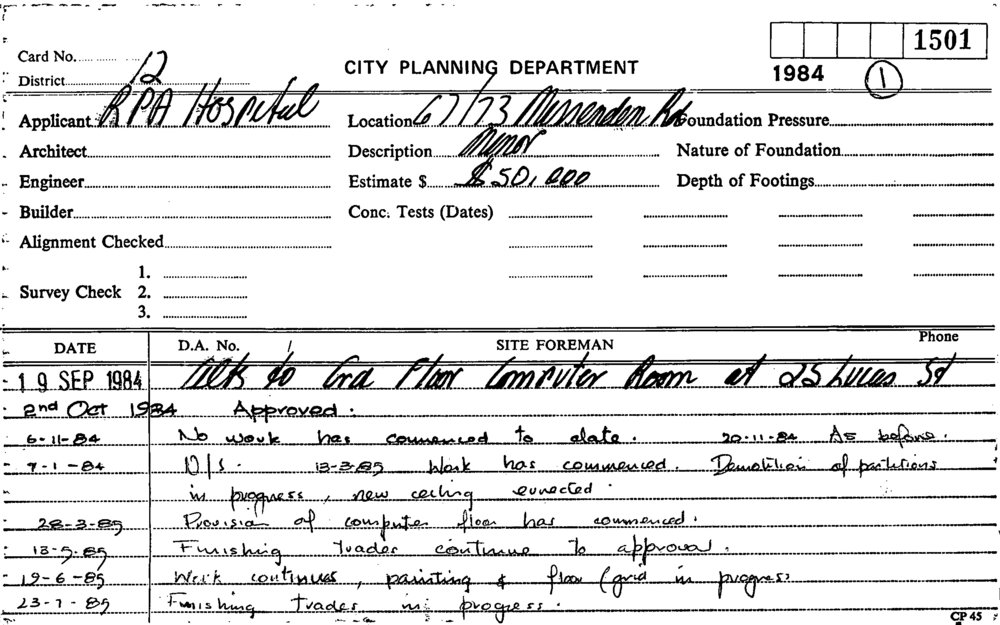 1501
Card No.
District 12
CITY PLANNING DEPARTMENT
1984 1
Applicant RPA Hospital Location 67/73 Missenden Rd Foundation Pressure
Architect Description Minor Nature of Foundation
Engineer Estimate $ $50,000 Depth of Footings
Builder Conc. Tests (Dates)
Alignment Checked
1.
Survey Check 2.
3.
DATE D.A. No. SITE FOREMAN Phone
19 SEP 1984 Alts to Grd Floor Computer Room at 25 Lucas St
2nd Oct 1984 Approved.
6-11-84 No work has commenced to date. 20-11-84 As before.
7-1-84 N/S. 13-3-85 Work has commenced. Demolition of partitions
in progress, new ceiling errected.
28-3-85 Provision of computer floor has commenced.
13-5-85 Finishing trades continue to approval.
19-6-85 Work continues, painting & floor grid in progress
23-7-85 Finishing trades in progress.
CP 45